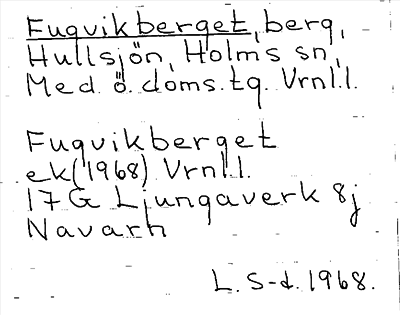 Fugvikberget, berg,
Hullsjön, Holms sn,
Med. ö. doms. tg. Vrnl.l.
Fugvikberget
ek (1968) Vrnl.l.
17G Ljungaverk 8j
Navarn
L. S-d. 1968.